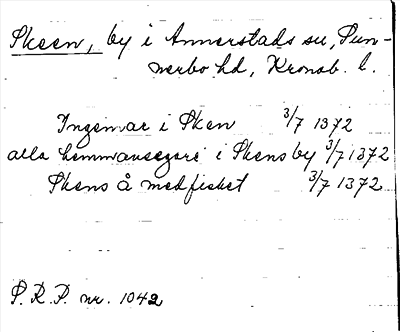 Skeen, by i Annerstads sn, Sun-
nerbo hd, Kronob. l.
Ingemar i Sken 3/7 1372
alla hemmansegare i Skens by 3/7 1372
Skens å med fisket 3/7 1372
S. R. P. nr. 1042